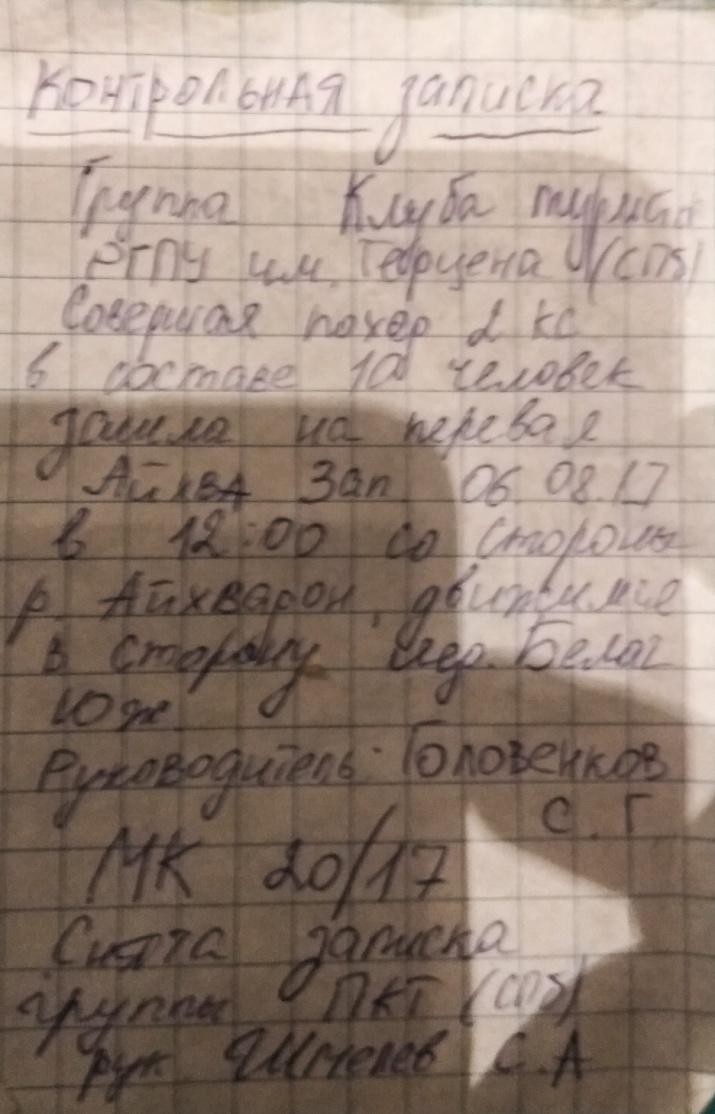 Контрольная записка
Группа Клуба туристов
РГПУ им. Герцена (СПб)
Совершая поход 2 кс
в составе 10 человек
зашла на перевал
Айхва Зап. 06.08.17
в 12:00 со стороны
р. Айхварон, движимся
в сторону лед. Белаг
Юж.
Руководитель: Головенков
С. Г
МК 20/17
Снята записка
группы ПКТ (СПб)
рук Шмелев С. А